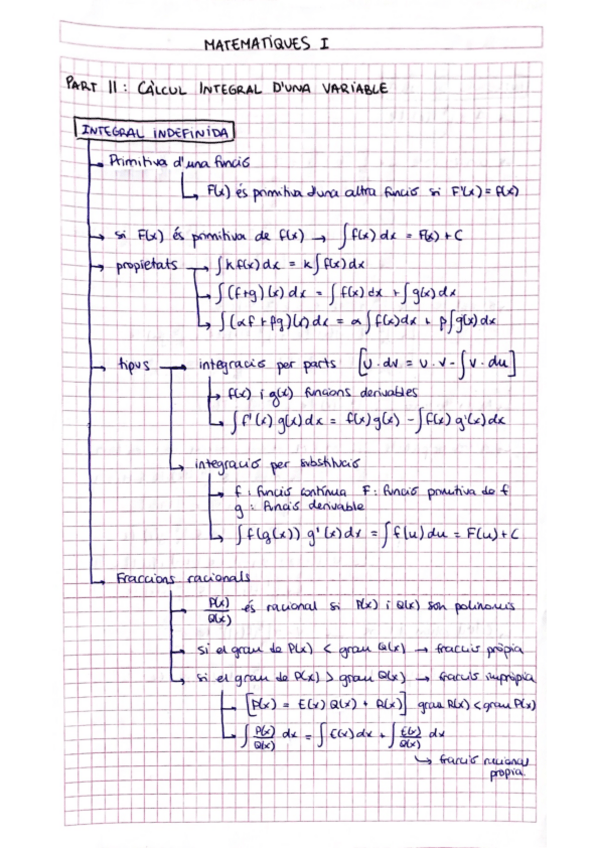 MATEMÀTIQUES I
PART II: CÀLCUL INTEGRAL D'UNA VARIABLE
INTEGRAL INDEFINIDA
Primitiva d'una funció
F(x) és primitiva d'una altra funció si F'(x) = f(x)
si F(x) és primitiva de f(x) → ∫f(x) dx = F(x) + C
propietats → ∫k f(x) dx = k∫f(x) dx
∫(f+g)(x) dx = ∫f(x) dx + ∫g(x) dx
∫(αf + βg)(x) dx = α∫f(x) dx + β∫g(x) dx
tipus → integració per parts [u · dv = u · v - ∫v · du]
f(x) i g(x) funcions derivables
∫f'(x) g(x) dx = f(x) g(x) - ∫f(x) g'(x) dx
integració per substitució
f: funció contínua F: funció primitiva de f
g: funció derivable
∫f(g(x)) g'(x) dx = ∫f(u) du = F(u) + C
Fraccions racionals
P(x)/Q(x) és racional si P(x) i Q(x) són polinomis
si el grau de P(x) < grau Q(x) → fracció pròpia
si el grau de P(x) > grau Q(x) → fracció impròpia
[P(x) = E(x) Q(x) + R(x)] grau R(x) < grau P(x)
∫P(x)/Q(x) dx = ∫E(x) dx + ∫E(x)/Q(x) dx
fracció racional
pròpia